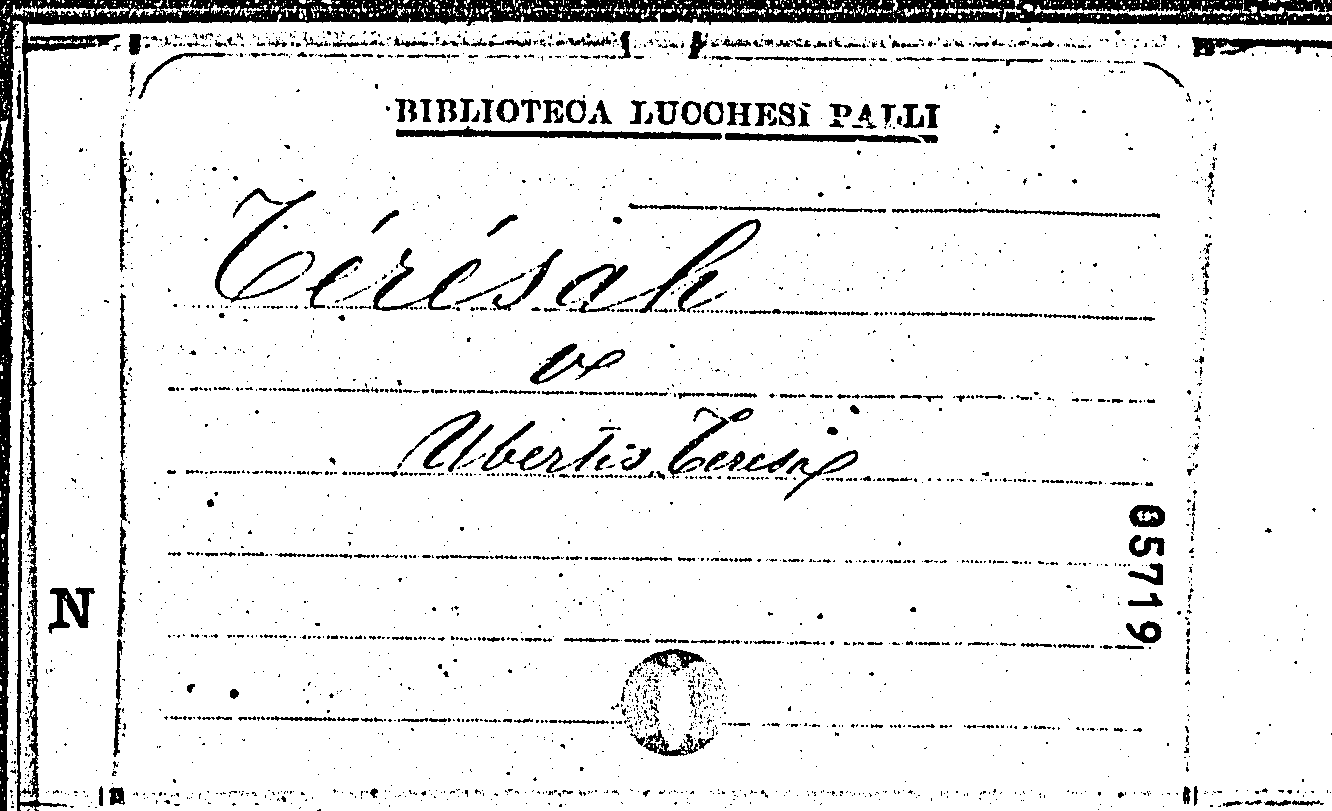 BIBLIOTECA LUCCHESI PALLI
Térésah
ve
Ubertis Teresa
65719
N